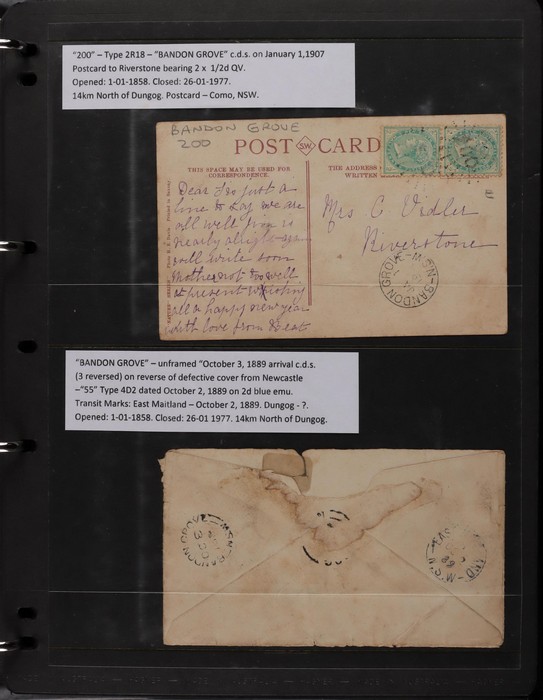 "200" – Type 2R18 – "BANDON GROVE" c.d.s. on January 1,1907
Postcard to Riverstone bearing 2 x 1/2d QV.
Opened: 1-01-1858. Closed: 26-01-1977.
14km North of Dungog. Postcard – Como, NSW.
BANDON GROVE
200
POST SW CARD
THIS SPACE MAY BE USED FOR
CORRESPONDENCE.
THE ADDRESS
WRITTEN
Dear just a
line to say we are
all well is
nearly alright
will write soon
Mother not too well
at present wishing
all a happy new year
with love from
Mrs C Vidler
Riverstone
BANDON GROVE N.S.W
"BANDON GROVE" – unframed "October 3, 1889 arrival c.d.s.
(3 reversed) on reverse of defective cover from Newcastle
–"55" Type 4D2 dated October 2, 1889 on 2d blue emu.
Transit Marks: East Maitland – October 2, 1889. Dungog - ?.
Opened: 1-01-1858. Closed: 26-01 1977. 14km North of Dungog.
BANDON GROVE N.S.W
EAST AND N.S.W
89